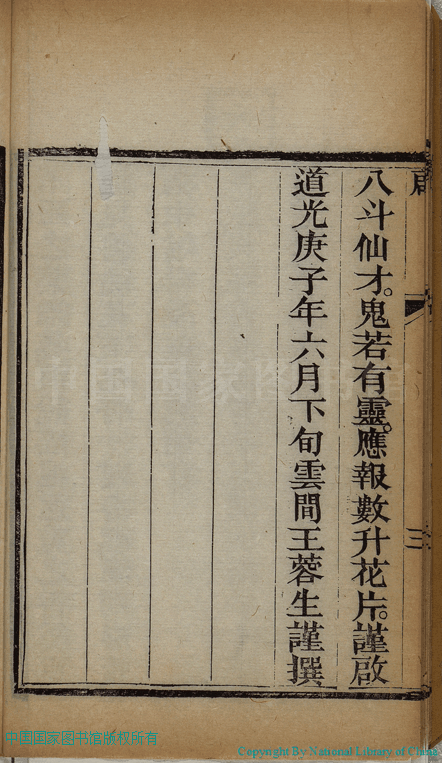 八斗仙才。鬼若有靈。應報數升花片。謹啟
道光庚子年六月下旬雲間王蓉生謹撰
三
中国国家图书馆
中国国家图书馆版权所有
Copyright By National Library of China